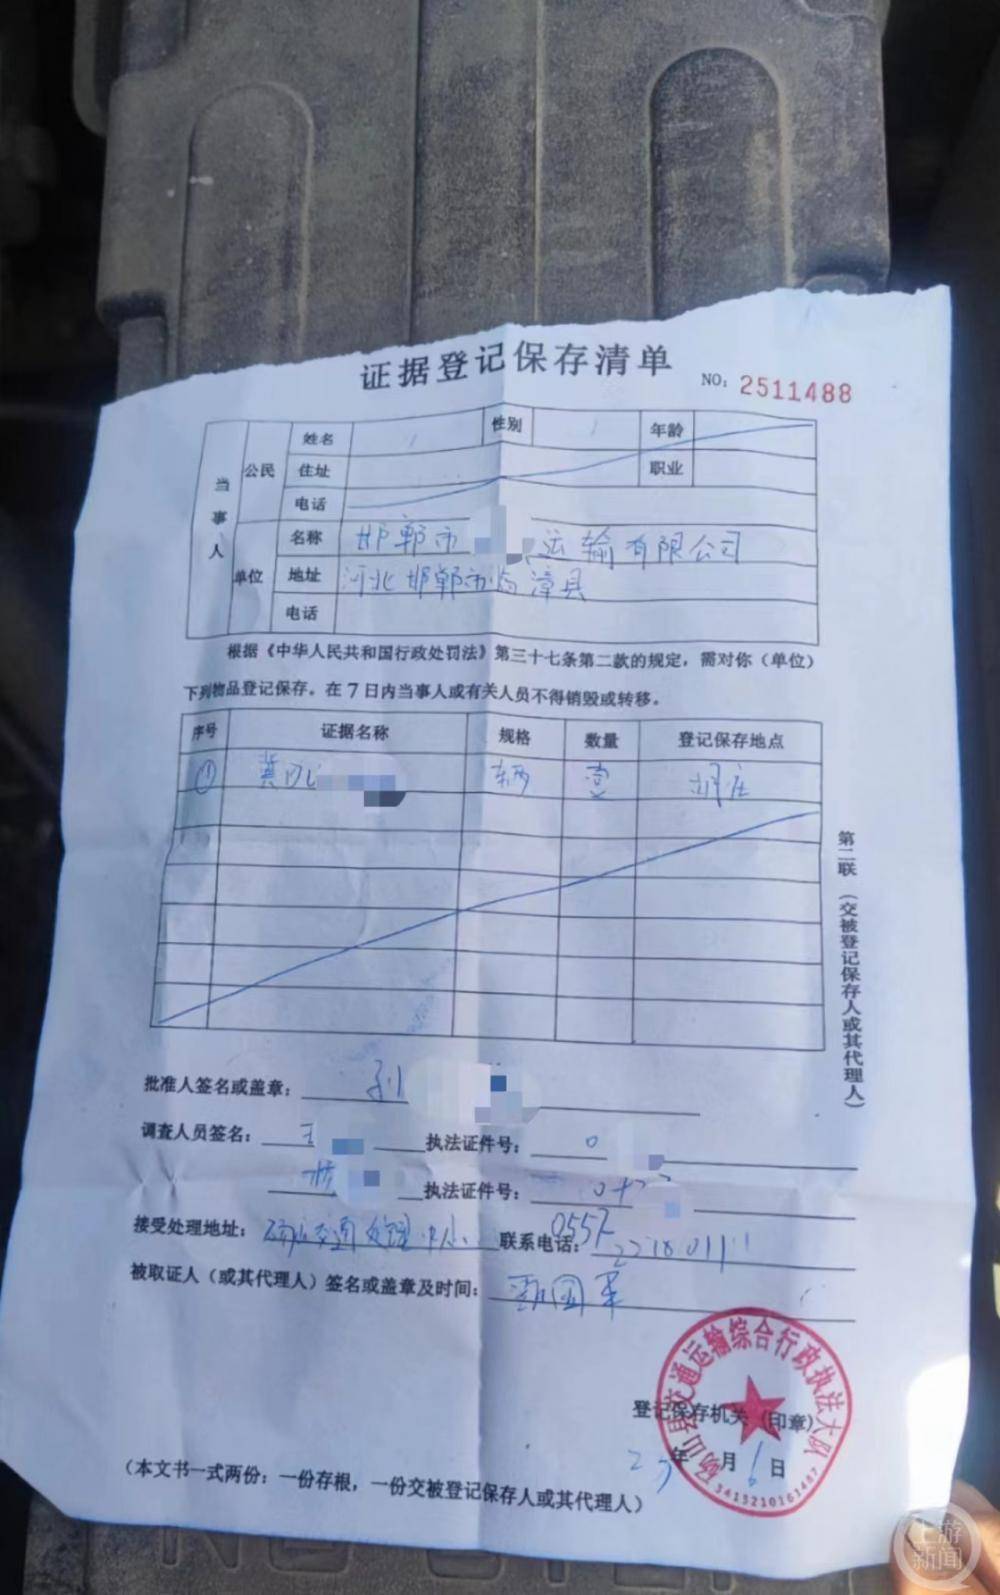 证据登记保存清单
NO: 2511488
当事人
公民
姓名
性别
年龄
住址
职业
电话
单位
名称 邯郸市 运输有限公司
地址 河北邯郸市临漳县
电话
根据《中华人民共和国行政处罚法》第三十七条第二款的规定，需对你（单位）
下列物品登记保存。在7日内当事人或有关人员不得销毁或转移。
序号 证据名称 规格 数量 登记保存地点
① 冀 辆 壹
第二联（交被登记保存人或其代理人）
批准人签名或盖章：
调查人员签名：王 执法证件号：0
执法证件号：
接受处理地址：砀山交通处理中心 联系电话：0557
被取证人（或其代理人）签名或盖章及时间：
登记保存机关（印章）
年 月 日
砀山县交通运输综合行政执法大队
3415210161487
（本文书一式两份：一份存根，一份交被登记保存人或其代理人）
上游新闻